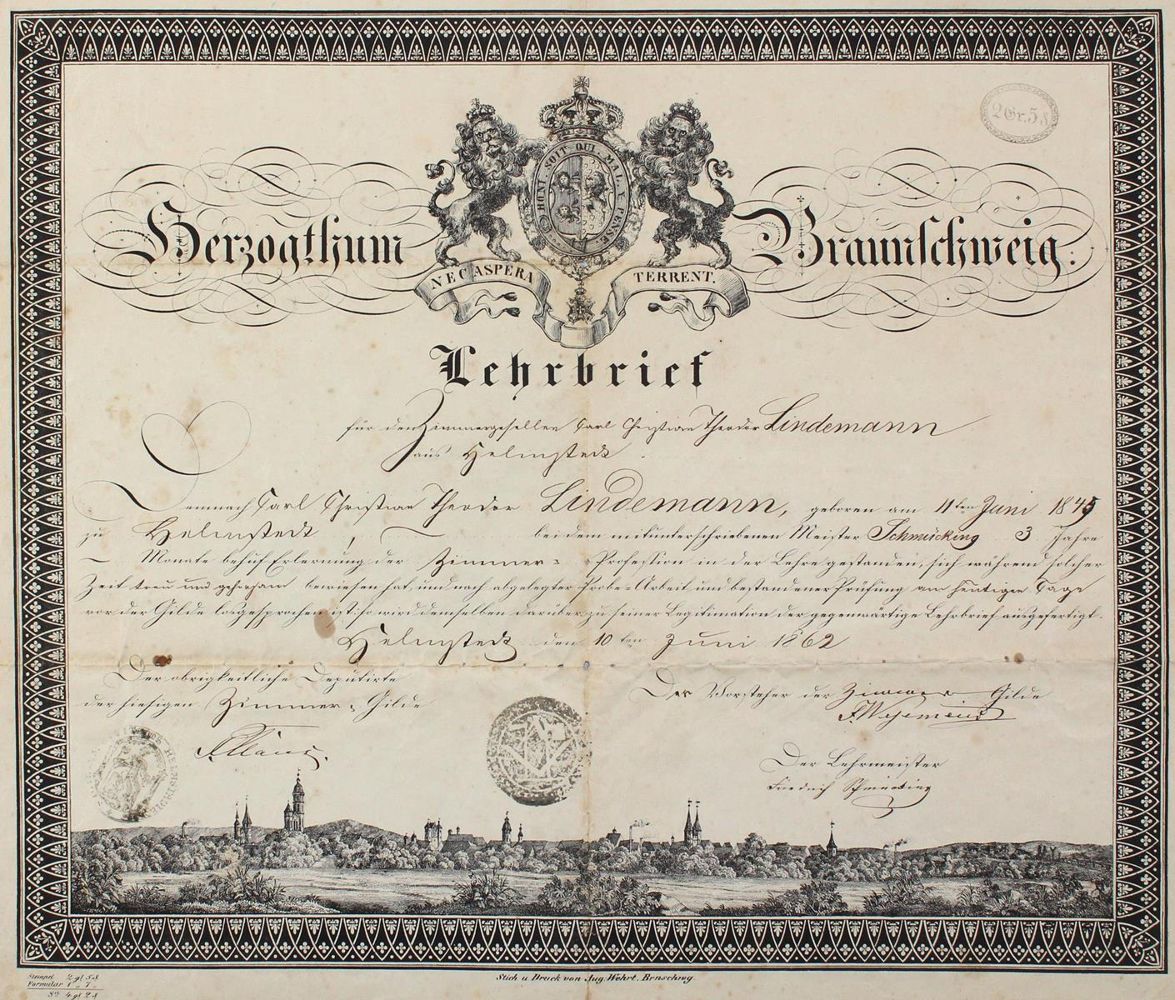 2 Gr. 5 ₰
HONI SOIT QUI MAL Y PENSE
Herzogthum Braunschweig.
NEC ASPERA TERRENT.
Lehrbrief
für den Zimmergesellen Carl Christian Theodor Lindemann
aus Helmstedt.
Demnach Carl Christian Theodor Lindemann, geboren am 11ten Juni 1843
zu Helmstedt, bei dem mitunterschriebenen Meister Schmücking 3 Jahre
– Monate behuf Erlernung der Zimmer= Profession in der Lehre gestanden, sich während solcher
Zeit treu und gehorsam bewiesen hat, und nach abgelegter Probe=Arbeit und bestandener Prüfung am heutigen Tage
vor der Gilde losgesprochen ist: so wird demselben darüber zu seiner Legitimation der gegenwärtige Lehrbrief ausgefertigt.
Helmstedt den 10ten Juni 1862
Der obrigkeitliche Deputirte
der hiesigen Zimmer= Gilde
Der Vorsteher der Zimmer Gilde
Der Lehrmeister
Friedrich Schmücking
Stempel 2 gl 5 ₰
Formular 1 " 7 "
Sa 4 gl 2 ₰
Stich u Druck von Aug. Wehrt, Brnschwg.